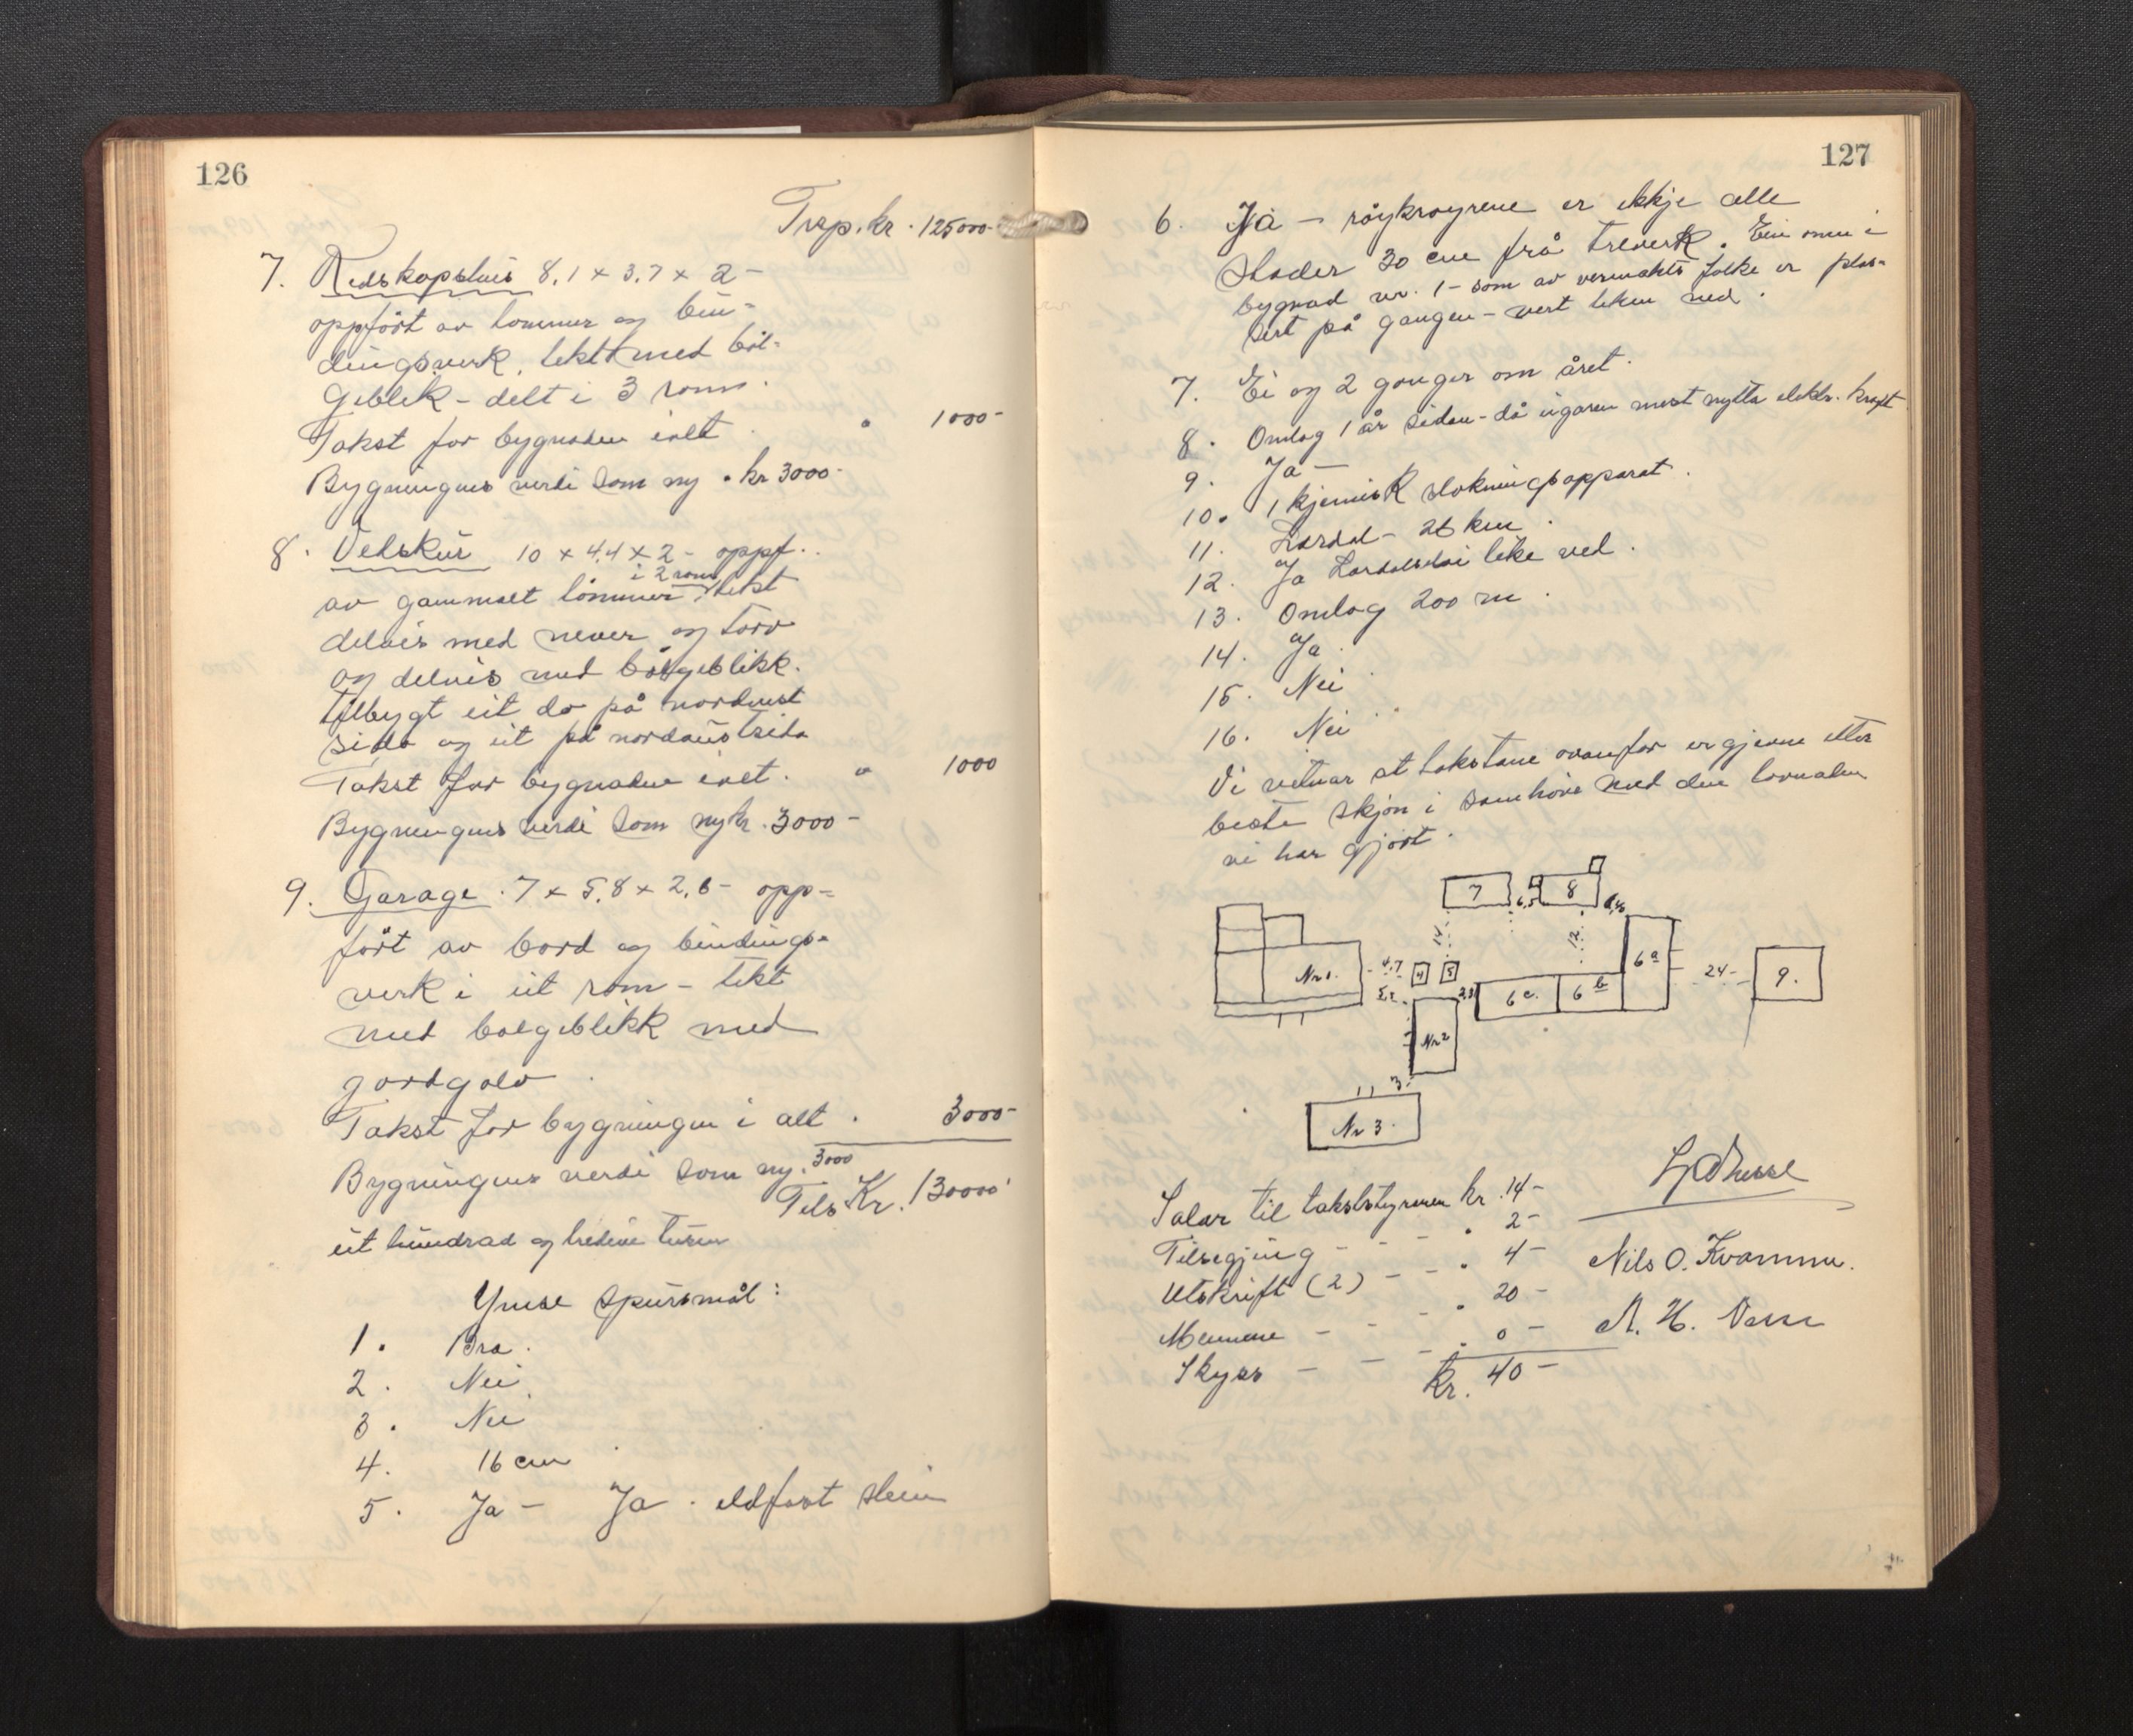 126
Trsp. kr. 125000-
7. Redskapshus 8,1 x 3,7 x 2 -
oppført av tømmer og bin-
dingsverk, tekt med bøl-
geblek - delt i 3 rom.
Takst for bygnaden ialt . " 1000-
Bygningens verdi som ny . kr 3000-
8. Vedskur 10 x 4,4 x 2 - oppf.
i 2 rom
av gammalt tømmer, tekt
delvis med never og torv
og delvis med bølgeblikk.
Tilbygt eit do på nordvest
sida og eit på nordaustsida
Takst for bygnaden ialt . " 1000
Bygningens verdi som ny kr. 3000-
9. Garage . 7 x 5,8 x 2,6 - opp-
ført av bord og bindings-
verk i eit rom - tekt
med bølgeblikk med
jordgolv .
Takst for bygningen i alt . 3000-
Bygningens verdi som ny . 3000
Tils Kr. 130000
eit hundrad og tredive tusen
Ymse spursmål :
1. Bra .
2. Nei
3. Nei
4. 16 cm
5. Ja - Ja . eldfast stein
127
6. Ja - røykrøyrene er ikkje alle
stader 30 cm frå treverk. Ein omn i
bygnad nr. 1 - som av vermakts folke er plas-
sert på gangen - vert teken ned .
7. Ei og 2 gonger om året .
8. Omlag 1 år sidan - då eigaren mest nytta elektr. kraft
9. Ja -
10. 1 kjemisk slokningsapparat .
11. Lærdal - 26 km .
12. Ja Lærdalselvi like ved .
13. Omlag 200 m .
14. Ja .
15. Nei
16. Nei
Vi vitnar at takstane ovanfor er gjevne etter
beste skjøn i samhøve med den lovnaden
vi har gjort .
7 6,5 8
14 12
Nr 1. 4,7 4 5 6a 24- 9.
2,8 6c. 6b
Nr 2
3-
Nr 3.
Salar til takststyremenn kr. 14-
Tilsegjing - - - " 2-
Utskrift (2) - - " 4-
Mennene - - - " 20-
Skyss - - - " 0-
Kr. 40-
Nils O. Kvamme.